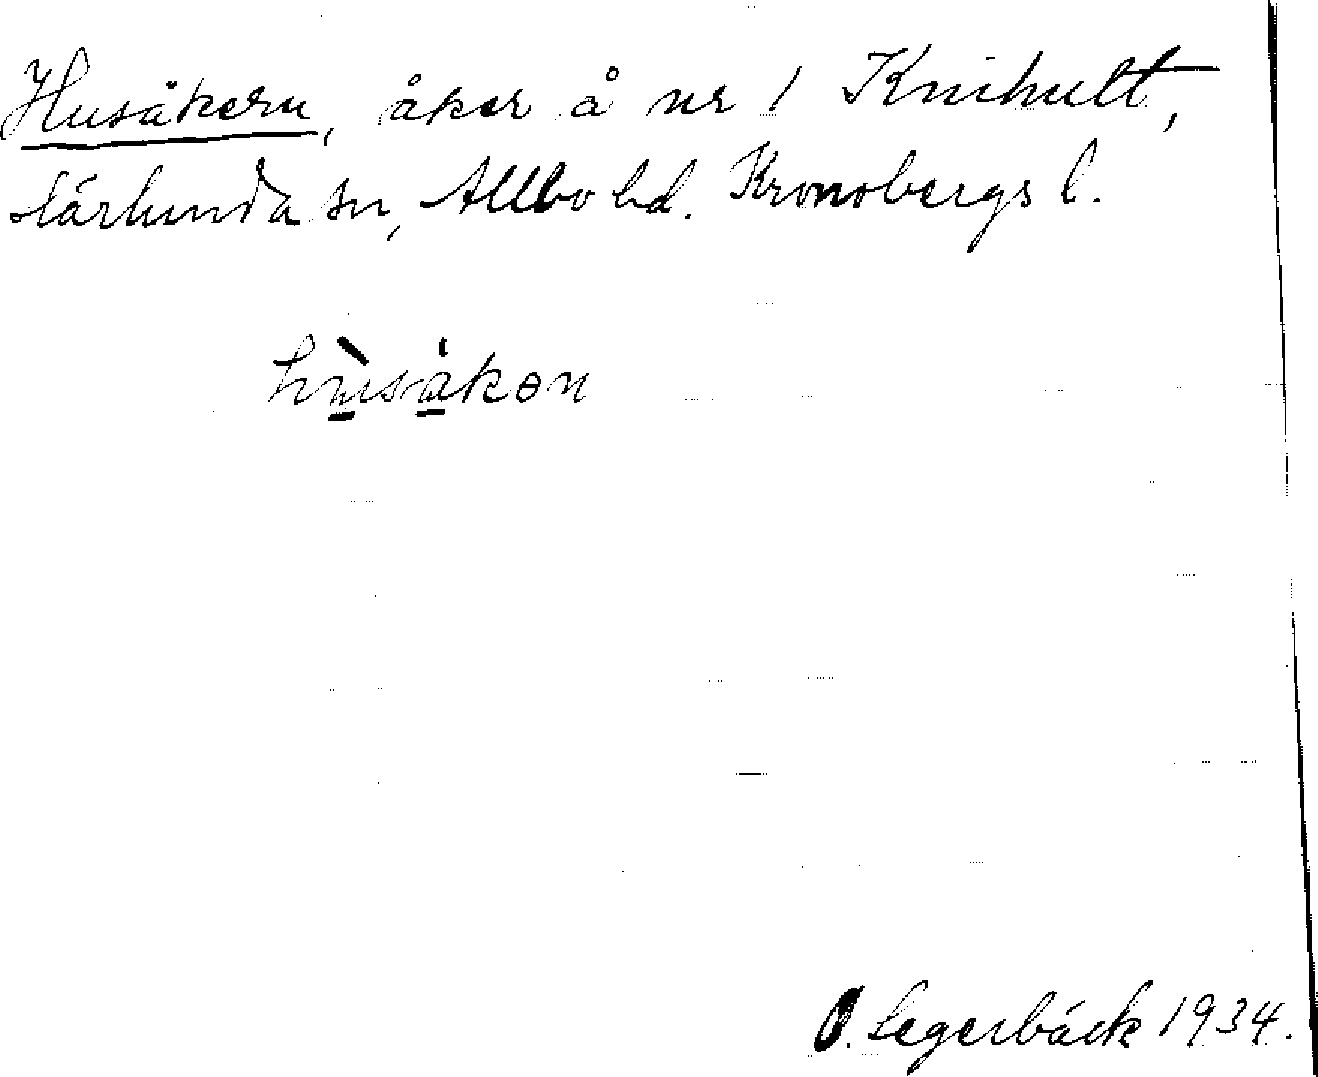 Husåkern, åker å nr 1 Knihult,
Härlunda sn, Allbo hd. Kronobergs l.
hùsåkən
O. Segerbäck 1934.